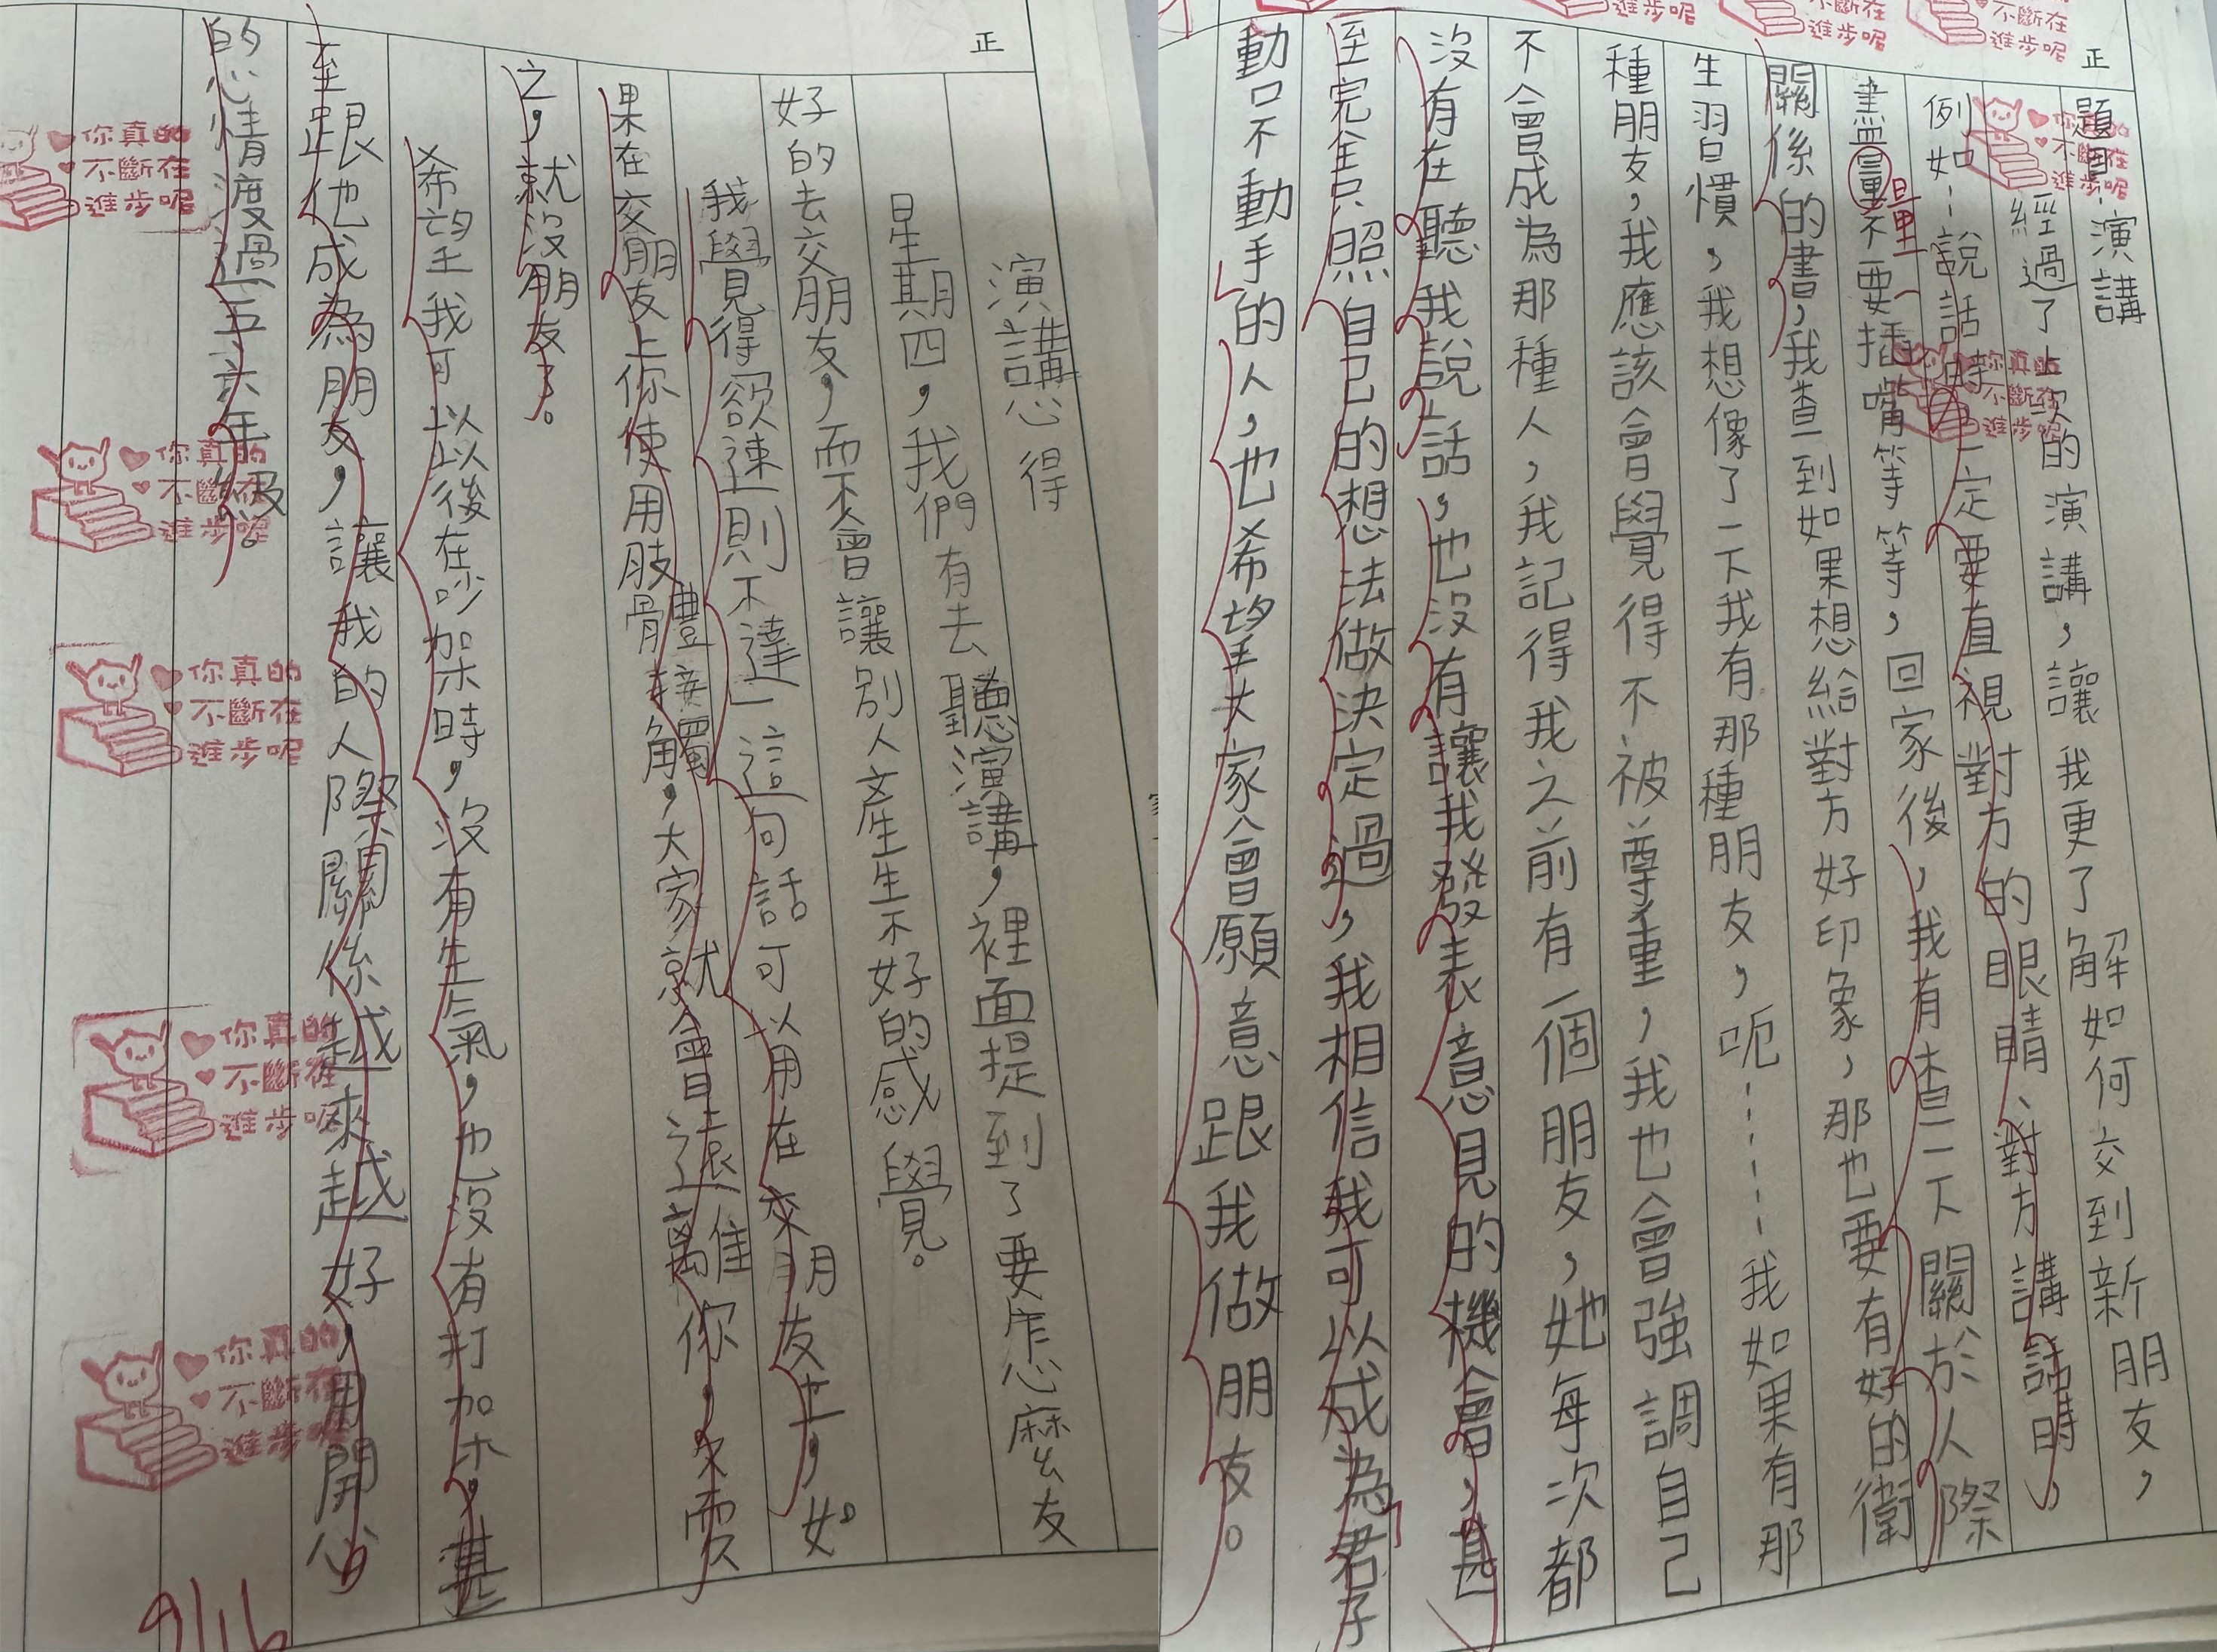 正
演講心得
星期四，我們有去聽演講，裡面提到了要怎麼友
好的去交朋友，而不會讓別人產生不好的感覺。
我覺得「欲速則不達」這句話可以用在交朋友上，如
果在交朋友上你使用肢體接觸，大家就會遠離你，久而久
之，就沒朋友了。
希望我可以以後在吵架時，沒有生氣，也沒有打架，甚
至跟他成為朋友，讓我的人際關係越來越好，用開心
的心情渡過五六年級。
你真的
不斷在
進步呢
你真的
不斷在
進步呢
你真的
不斷在
進步呢
你真的
不斷在
進步呢
你真的
不斷在
進步呢
9/16
正
題目：演講
經過了上次的演講，讓我更了解如何交到新朋友，
例如：說話時一定要直視對方的眼睛、對方講話時，
盡量不要插嘴等等，回家後，我有查一下關於人際
量
關係的書，我查到如果想給對方好印象，那也要有好的衛
生習慣，我想像了一下我有那種朋友，呃……我如果有那
種朋友，我應該會覺得不被尊重，我也會強調自己
不會成為那種人，我記得我之前有一個朋友，她每次都
沒有在聽我說話，也沒有讓我發表意見的機會，甚
至完全只照自己的想法做決定過，我相信我可以成為君子
動口不動手的人，也希望大家會願意跟我做朋友。
不斷在
進步呢
不斷在
進步呢
你真的
不斷在
進步呢
你真的
不斷在
進步呢